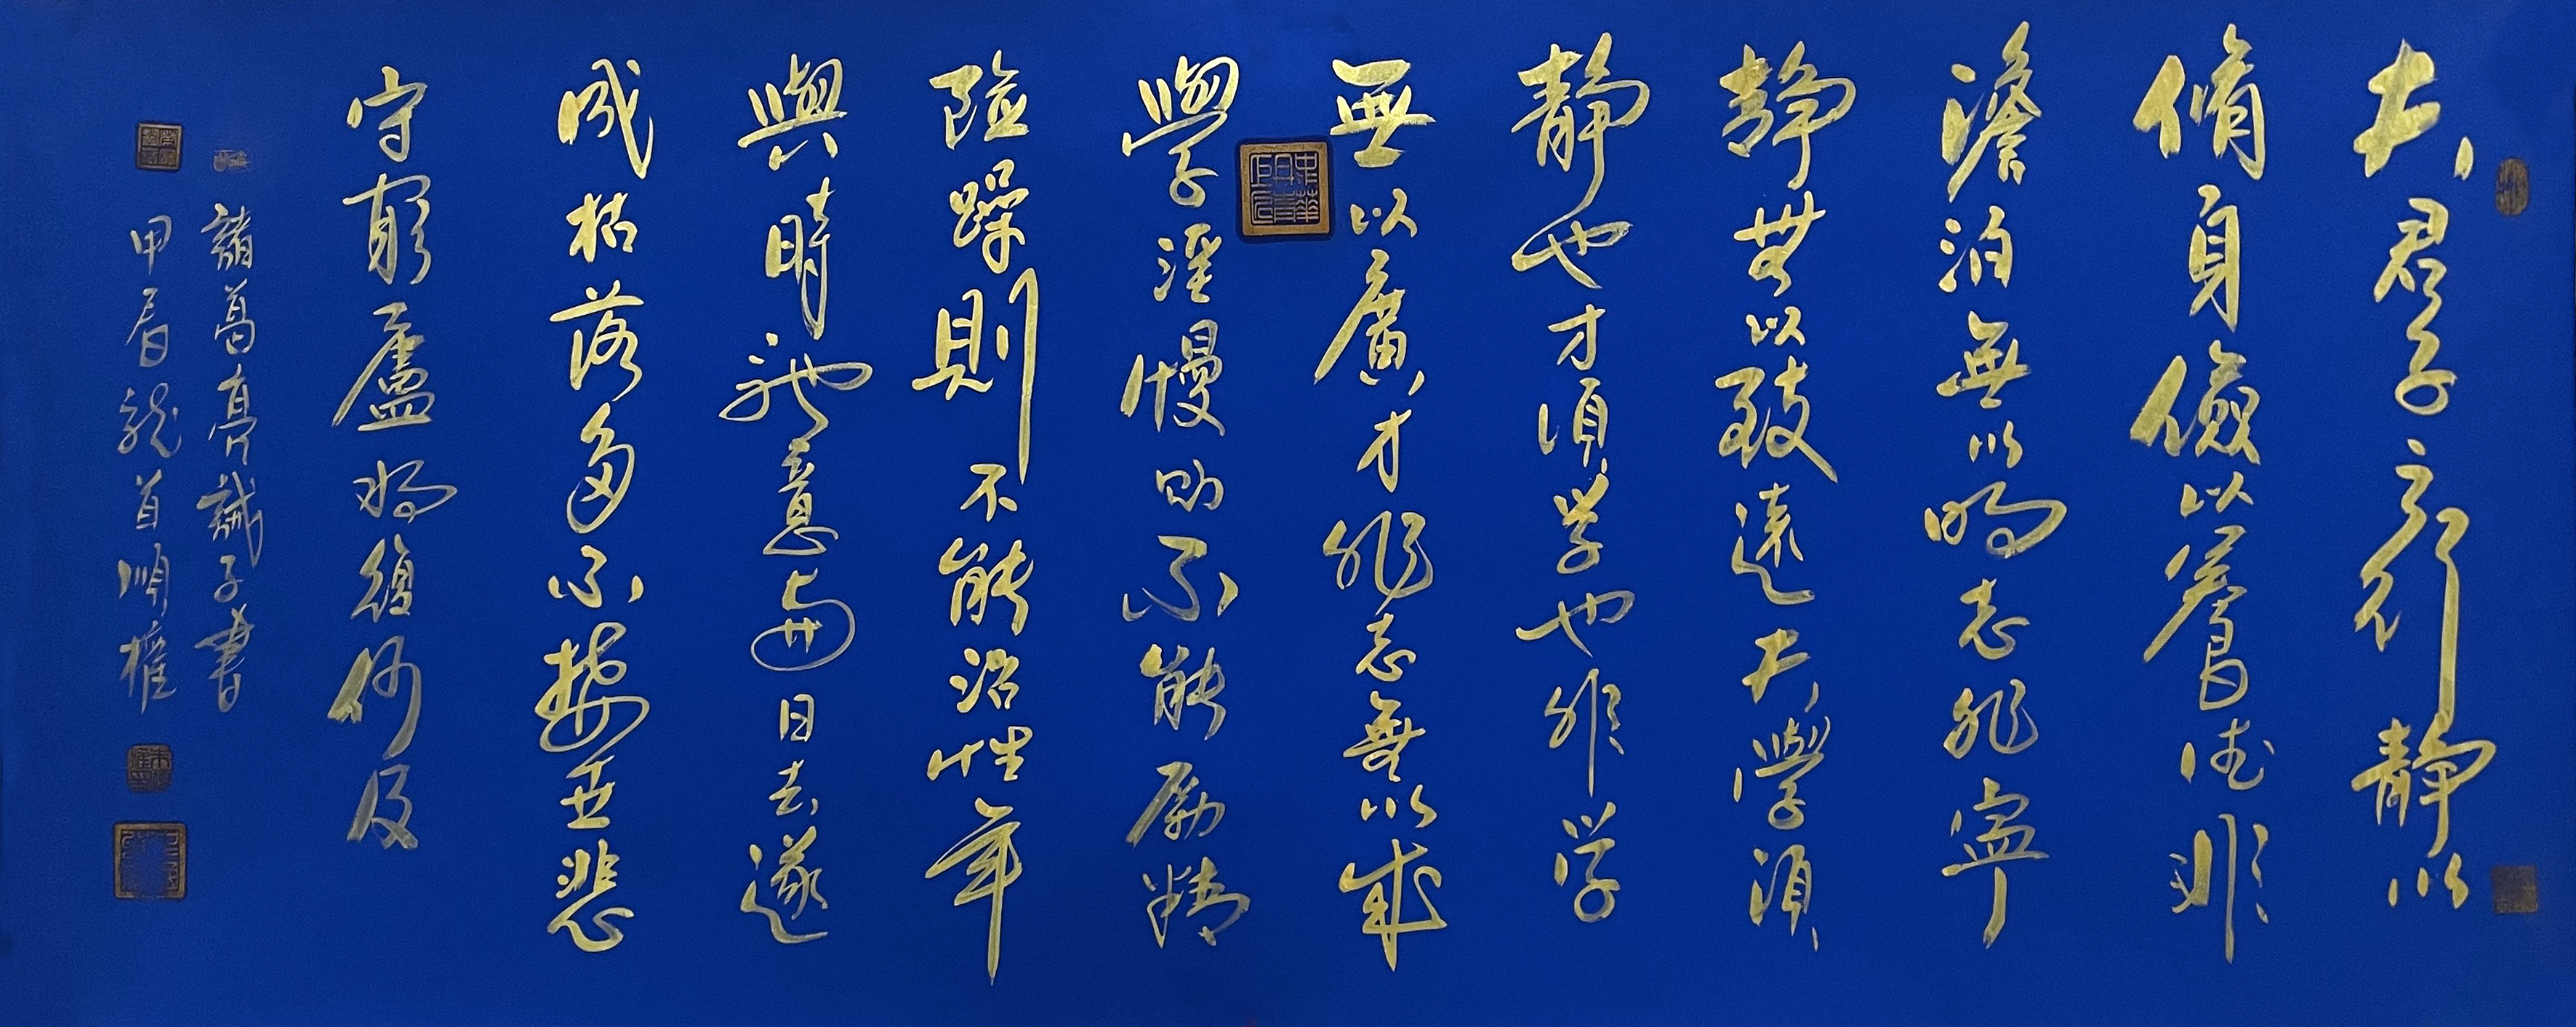 夫君子之行靜以
脩身儉以養德非
澹泊無以明志非寧
靜無以致遠夫學須
靜也才須学也非学
無以廣才非志無以成
學淫慢則不能勵精
險躁則不能治性年
與時馳意與日去遂
成枯落多不接世悲
守窮廬將復何及
諸葛亮誡子書
甲辰龍首順權